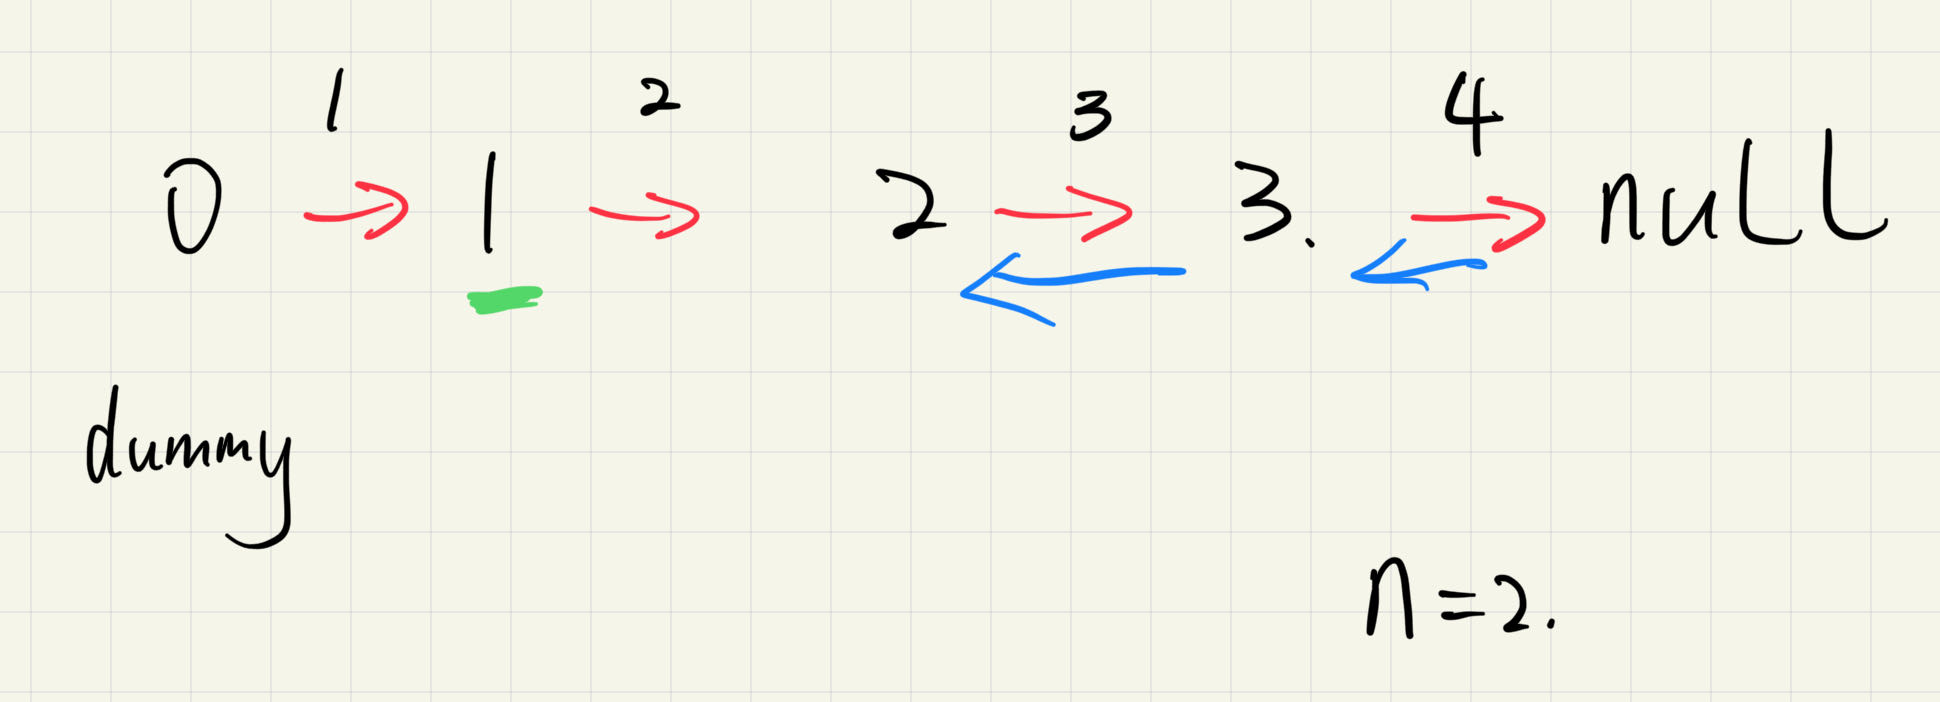 1 2 3 4
0 → 1 → 2 → 3. → null
dummy
n=2.